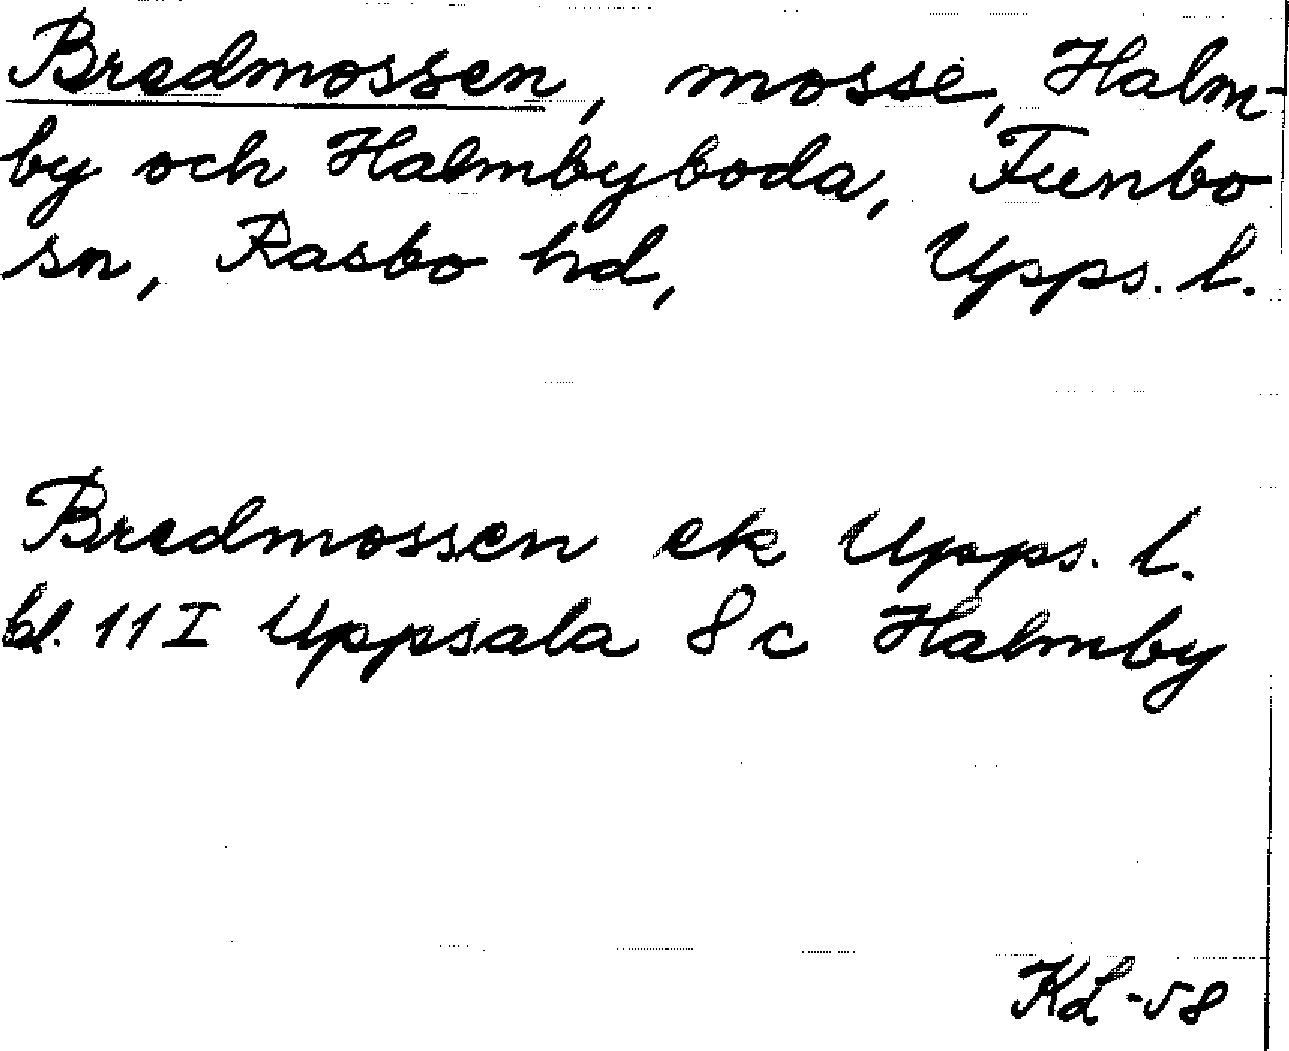 Bredmossen, mosse, Halm-
by och Halmbyboda, Funbo
sn, Rasbo hd, Upps. l.
Bredmossen ek Upps. l.
bl. 11 I Uppsala 8 c Halmby
KL -58